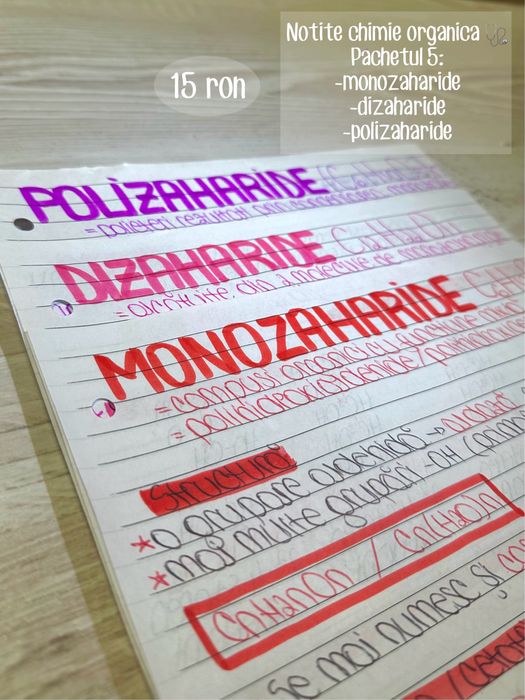 Notite chimie organica
Pachetul 5:
-monozaharide
-dizaharide
-polizaharide
15 ron
POLIZAHARIDE
DIZAHARIDE C₁₂H₂₂O₁₁
= alcătuite din 2 molecule de monozaharide
MONOZAHARIDE
= compuși organici cu funcțiune mixtă
= polihidroxialdehide/polihidroxi
Structură
*o grupare aldehidă →
*mai multe grupări -OH
CnH2nOn / Cn(H2O)n
Se mai numesc și